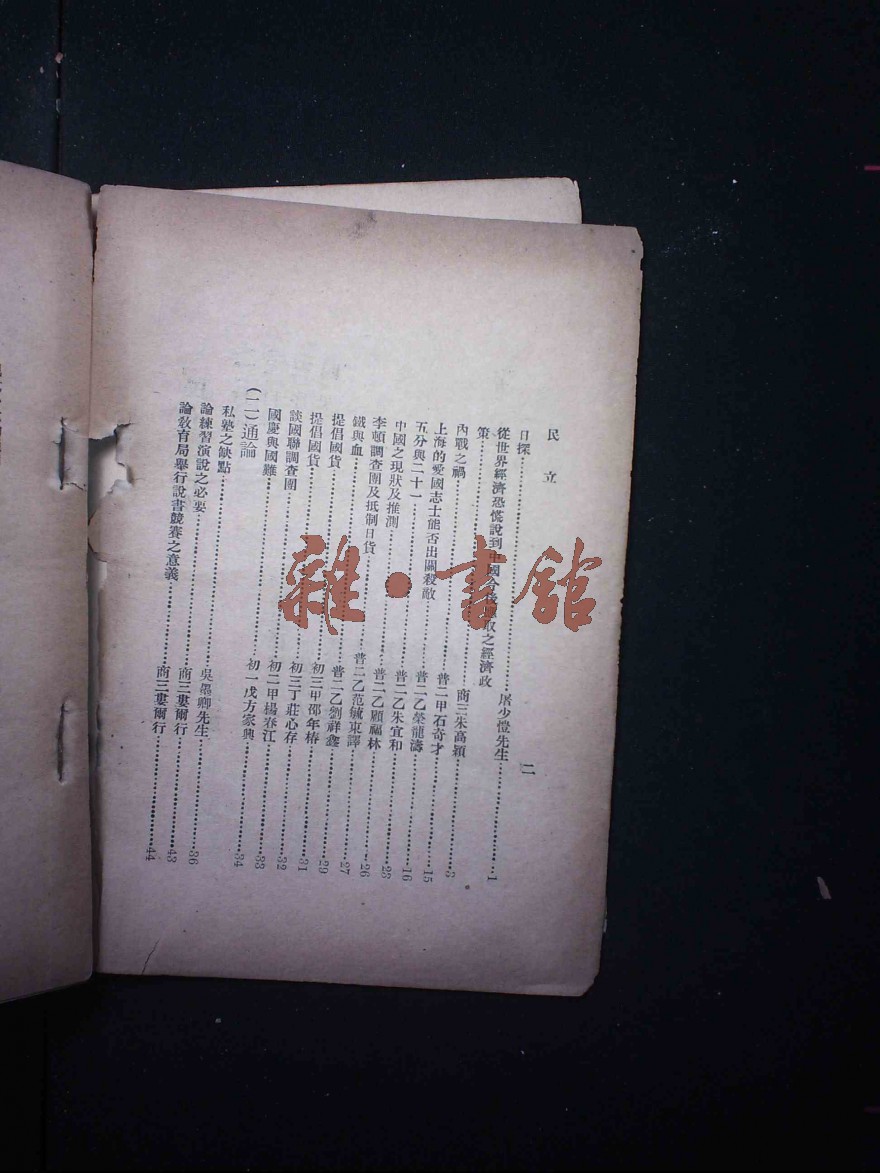 民立 二
日探……屠少愷先生……1
從世界經濟恐慌說到中國今後應取之經濟政
策……商三朱高穎……3
內戰之禍……普二甲石奇才……15
上海的愛國志士能否出關殺敵……普二乙榮龍濤……16
五分與二十一……普二乙朱宜和……23
中國之現狀及推測……普二乙顧福林……26
李頓調查團及抵制日貨……普二乙范毓東譯……27
鐵與血……普二乙劉祥鑫……29
提倡國貨……初三甲邵年椿……31
提倡國貨……初三丁莊心存……32
談國聯調查團……初二甲楊春江……33
國慶與國難……初一戊方家興……34
(二)通論
私塾之缺點……吳墨卿先生……36
論練習演說之必要……商三婁爾行……43
論教育局舉行說書競賽之意義……商三婁爾行……44
雜·書館